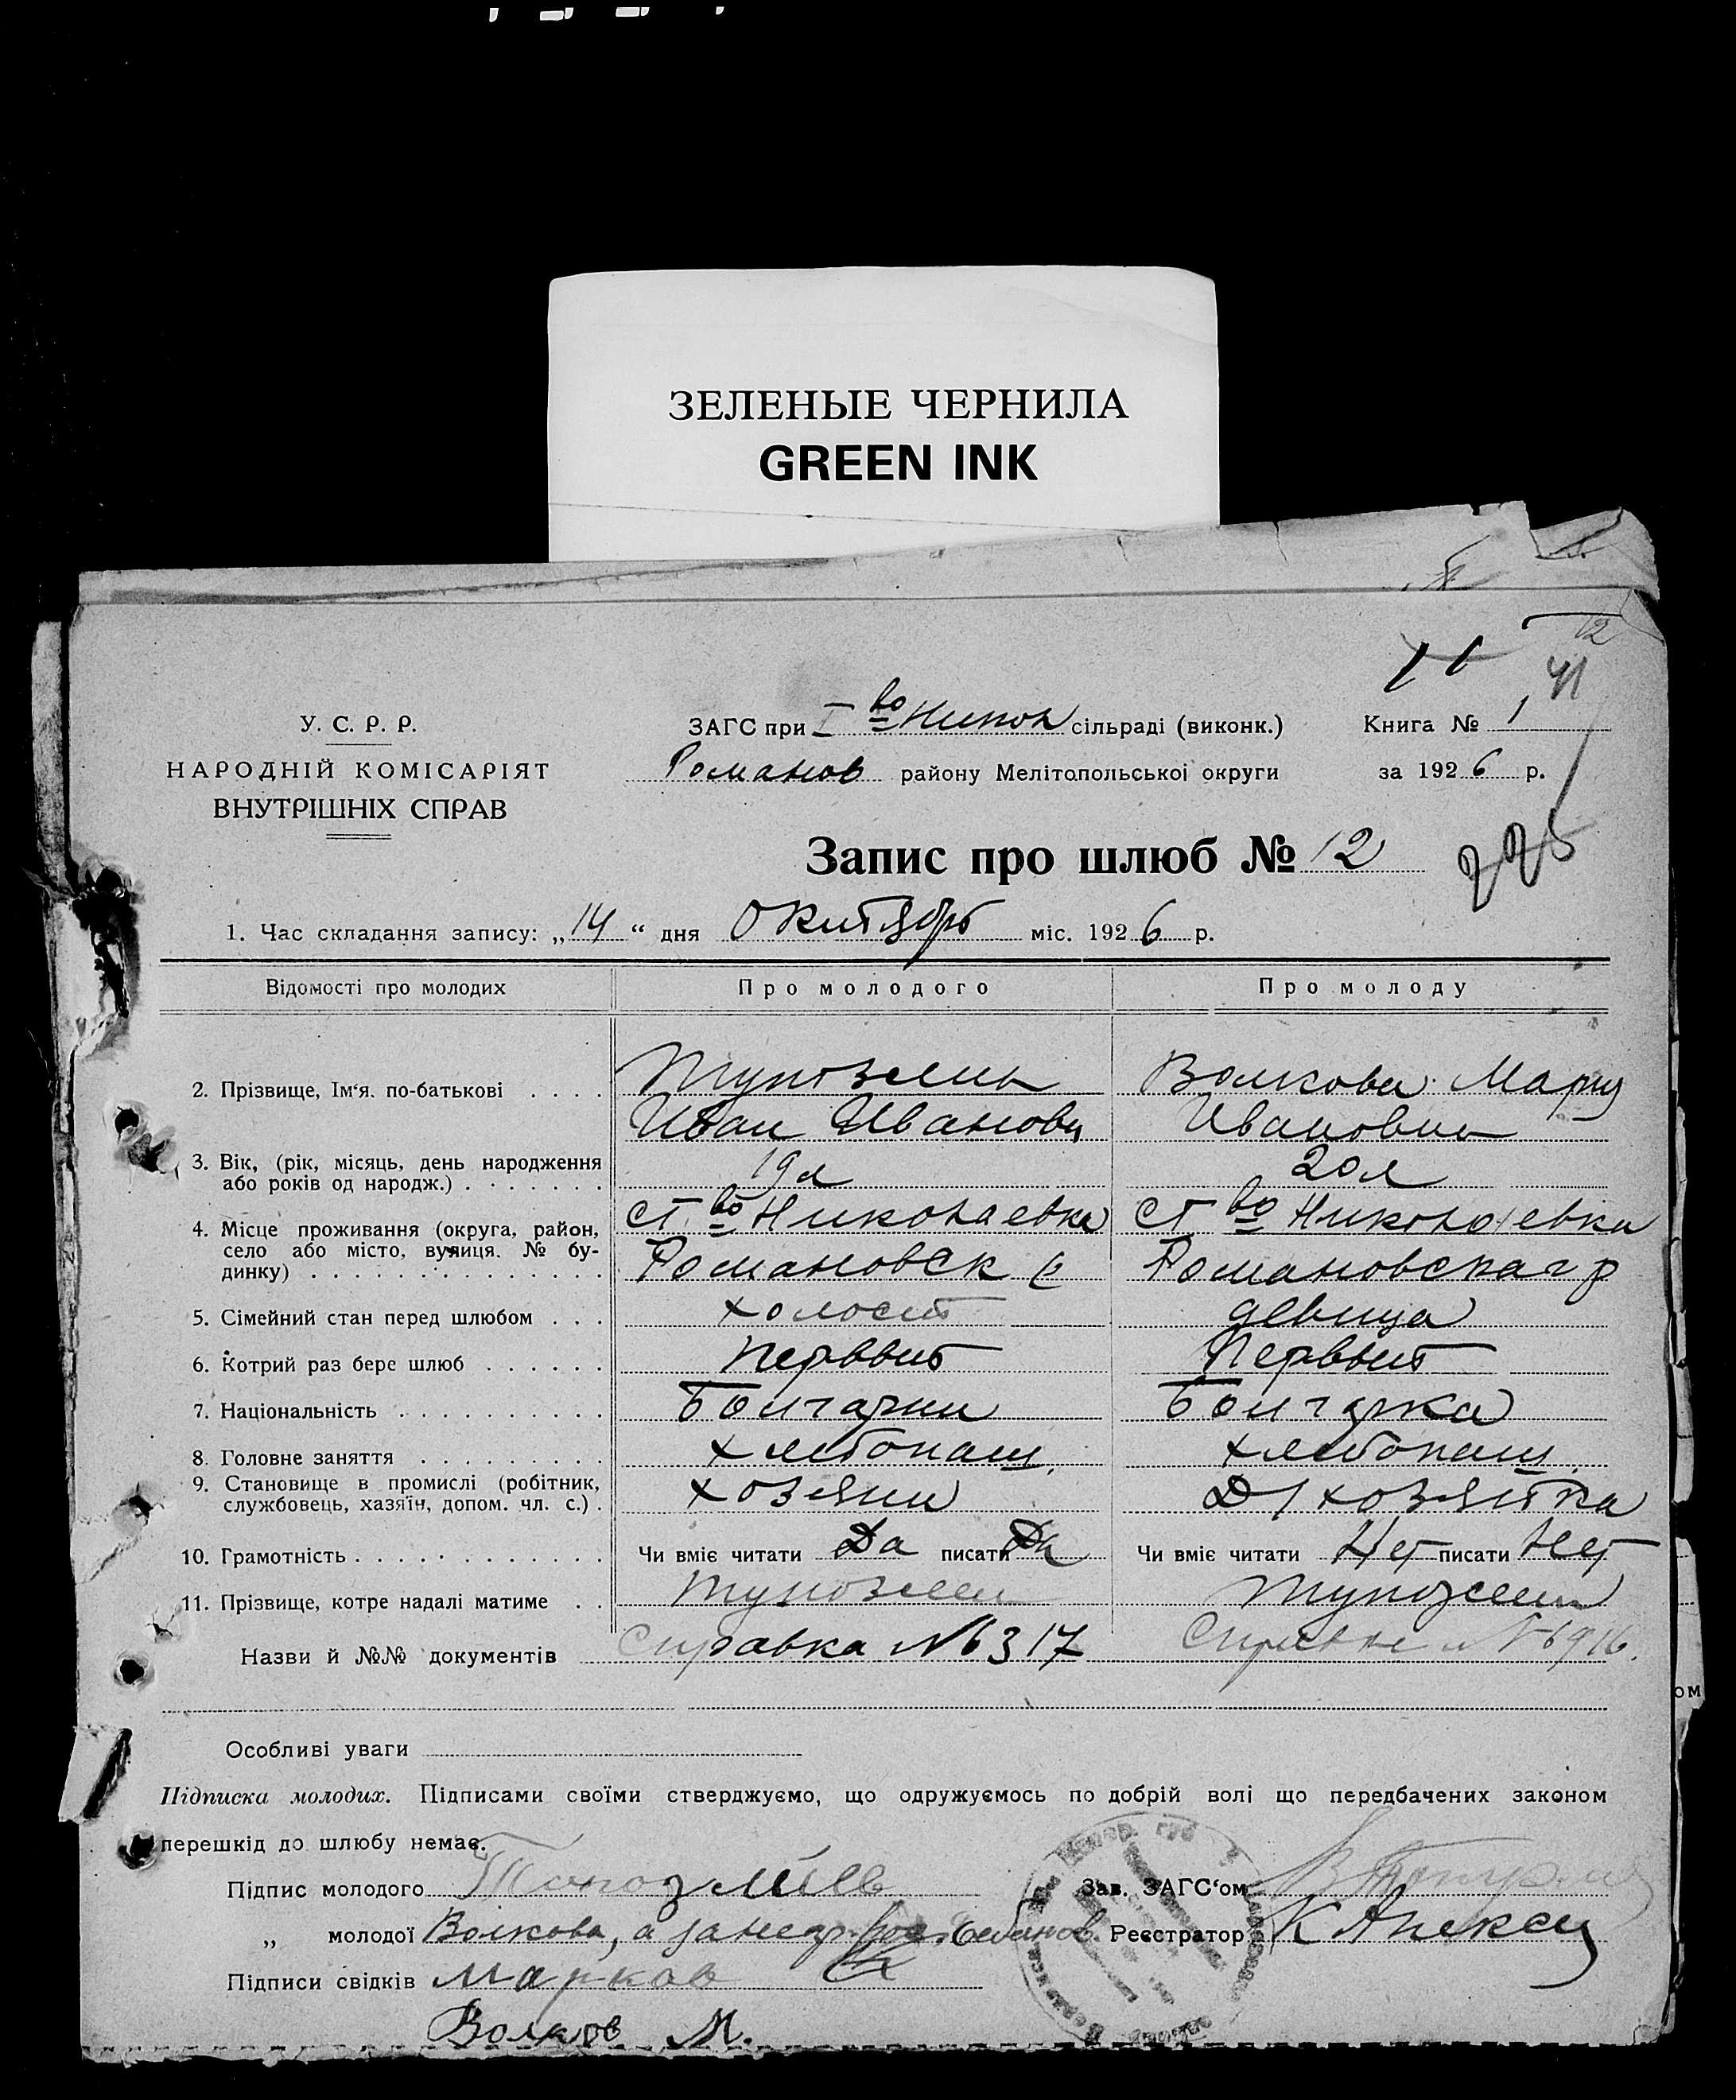 ЗЕЛЕНЫЕ ЧЕРНИЛА
GREEN INK
12
11
41
У. С. Р. Р.
НАРОДНІЙ КОМІСАРІЯТ
ВНУТРІШНІХ СПРАВ
ЗАГС при I во Никол сільраді (виконк.)
Романов району Мелітопольської округи
Книга № 1
за 1926 р.
Запис про шлюб № 12
225
1. Час складання запису: „14“ дня Октябрь міс. 1926 р.
Відомості про молодих Про молодого Про молоду
2. Прізвище, Ім‘я. по-батькові Волкова Мария
Иван Иванов Ивановна
3. Вік, (рік, місяць, день народження або років од народж.) 19 л 20 л
4. Місце проживання (округа, район, село або місто, вулиця. № будинку) ст во Николаевка ст во Николаевка
Романовск Романовскаг р
5. Сімейний стан перед шлюбом холост девица
6. Котрий раз бере шлюб Перввый Перввый
7. Національність Болгарин Болгарка
8. Головне заняття хлебопаш. хлебопаш.
9. Становище в промислі (робітник, службовець, хазяїн, допом. чл. с.) хозяин Д/хозяйка
10. Грамотність Чи вміє читати Да писати Да Чи вміє читати Нет писати Нет
11. Прізвище, котре надалі матиме
Назви й №№ документів Справка № 6317 Справка № 6916.
Особливі уваги
Підписка молодих. Підписами своїми стверджуємо, що одружуємось по добрій волі що передбачених законом
перешкід до шлюбу немає.
Підпис молодого Зав. ЗАГС‘ом
„ молодої Волкова, а за негр. Реєстратор К Алексе
Підписи свідків Марков
Волков М.